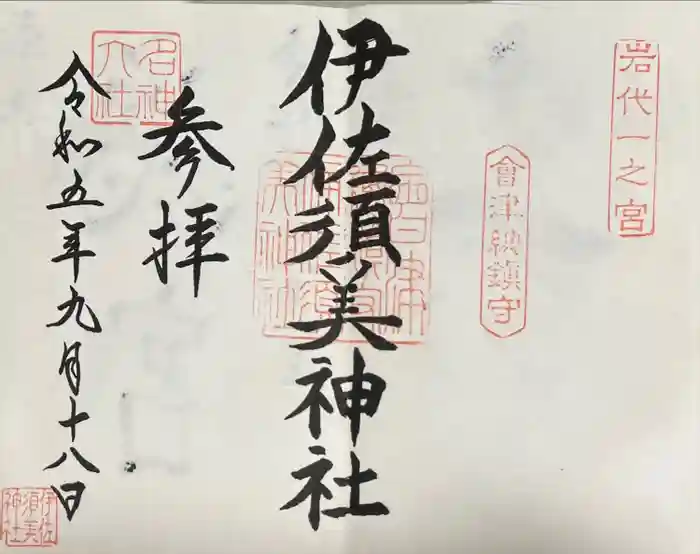 岩代一之宮
會津総鎮守
伊佐須美神社
名神大社
参拝
令和五年九月十八日
伊佐須美神社